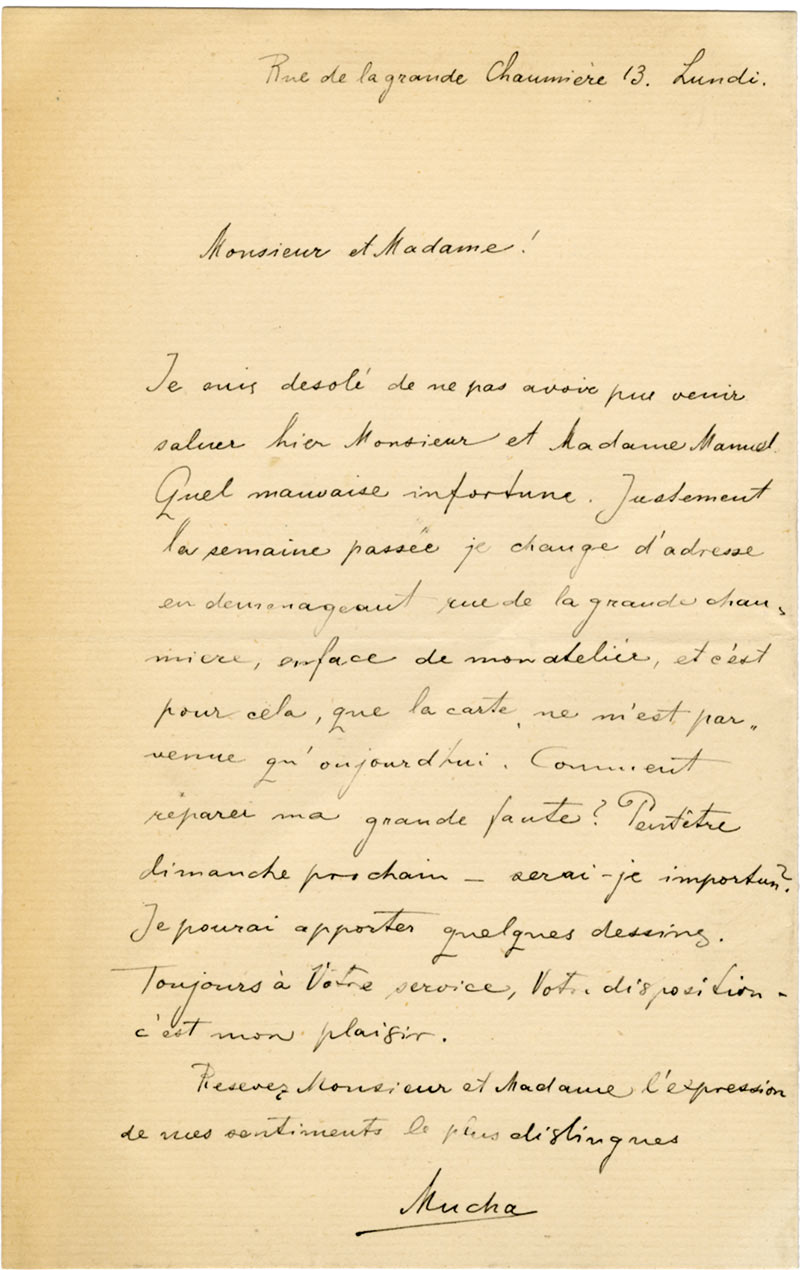 Rue de la grande Chaumière 13. Lundi.
Monsieur et Madame!
Je suis desolé de ne pas avoir pue venir
saluer hier Monsieur et Madame Manuel.
Quel mauvaise infortune. Justement
la semaine passée je change d'adresse
en demenageant rue de la grande chau-
miere, enface de mon atelièr, et c'est
pour cela, que la carte ne m'est par„
venue qu'aujourd'hui. Comment
réparer ma grande faute? Peutêtre
dimanche prochain – serai-je importun?
Je pourai apporter quelques dessins.
Toujours à Votre service, Votre disposition –
c'est mon plaisir.
Resevez Monsieur et Madame l'expression
de mes sentiments le plus distingues
Mucha